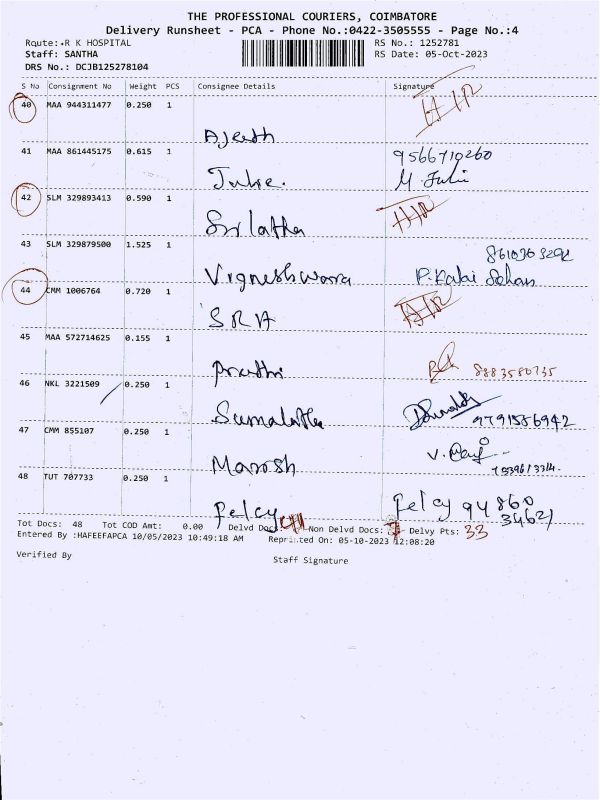 THE PROFESSIONAL COURIERS, COIMBATORE
Delivery Runsheet - PCA - Phone No.:0422-3505555 - Page No.:4
Route: R K HOSPITAL RS No.: 1252781
Staff: SANTHA RS Date: 05-Oct-2023
DRS No.: DCJB125278104
S No Consignment No Weight PCS Consignee Details Signature
40 MAA 944311477 0.250 1
Ajeeth
41 MAA 861445175 0.615 1 9566710260
Julie. M. Julie
42 SLM 329893413 0.590 1
Srilatha
43 SLM 329879500 1.525 1
Vigneshwara
44 CMM 1006764 0.720 1
SRA
45 MAA 572714625 0.155 1
Preethi 8883580735
46 NKL 3221509 0.250 1
Sumalatha 9791586942
47 CMM 855107 0.250 1
Manosh
48 TUT 707733 0.250 1
Pelcy Pelcy 94860
34621
Tot Docs: 48 Tot COD Amt: 0.00 Delvd Docs: 41 Non Delvd Docs: 7 Delvy Pts: 33
Entered By :HAFEEFAPCA 10/05/2023 10:49:18 AM Reprinted On: 05-10-2023 12:08:20
Verified By Staff Signature